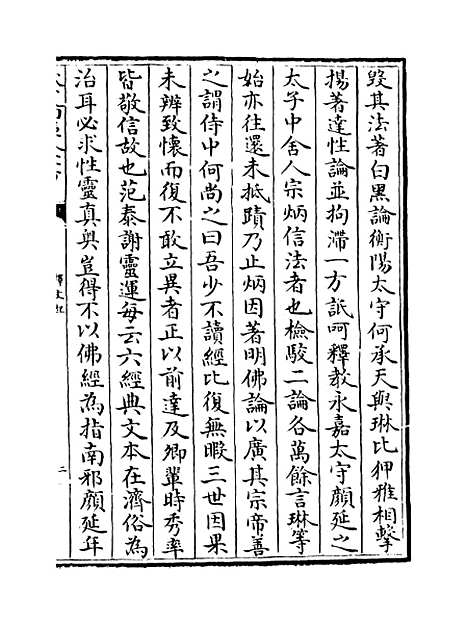 毀其法著白黑論衡陽太守何承天與琳比狎雅相擊
揚著達性論並拘滯一方詆呵釋教永嘉太守顏延之
太子中舍人宗炳信法者也檢駁二論各萬餘言琳等
始亦往還未抵蹟乃止炳因著明佛論以廣其宗帝善
之謂侍中何尚之曰吾少不讀經比復無暇三世因果
未辨致懷而復不敢立異者正以前達及卿輩時秀率
皆敬信故也范泰謝靈運每云六經典文本在濟俗為
治耳必求性靈真奧豈得不以佛經為指南邪顏延年
釋文紀
二